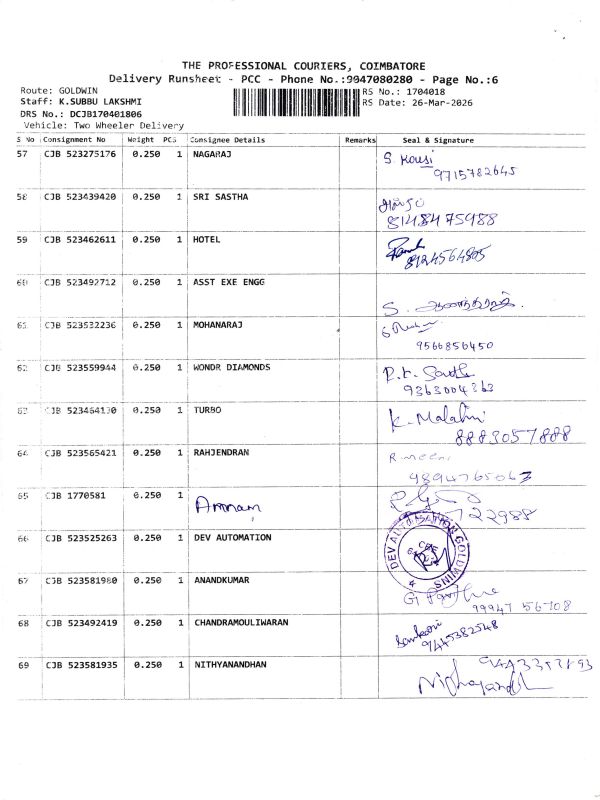 THE PROFESSIONAL COURIERS, COIMBATORE
Delivery Runsheet - PCC - Phone No.:9947080280 - Page No.:6
Route: GOLDWIN
Staff: K.SUBBU LAKSHMI
DRS No.: DCJB170401806
Vehicle: Two Wheeler Delivery
RS No.: 1704018
RS Date: 26-Mar-2026
S No Consignment No Weight PCS Consignee Details Remarks Seal & Signature
57 CJB 523275176 0.250 1 NAGARAJ S. Kousi
9715782645
58 CJB 523439420 0.250 1 SRI SASTHA
8148475988
59 CJB 523462611 0.250 1 HOTEL
8124564805
60 CJB 523492712 0.250 1 ASST EXE ENGG S.
61 CJB 523532236 0.250 1 MOHANARAJ
9566856450
62 CJB 523559944 0.250 1 WONDR DIAMONDS
9363004363
63 CJB 523464130 0.250 1 TURBO K. Malathi
8883057888
64 CJB 523565421 0.250 1 RAHJENDRAN
9894765063
65 CJB 1770581 0.250 1 Amman
22988
66 CJB 523525263 0.250 1 DEV AUTOMATION DEV AUTOMATION GOLDWINS
67 CJB 523581980 0.250 1 ANANDKUMAR
99947 56708
68 CJB 523492419 0.250 1 CHANDRAMOULIWARAN
9445382548
69 CJB 523581935 0.250 1 NITHYANANDHAN